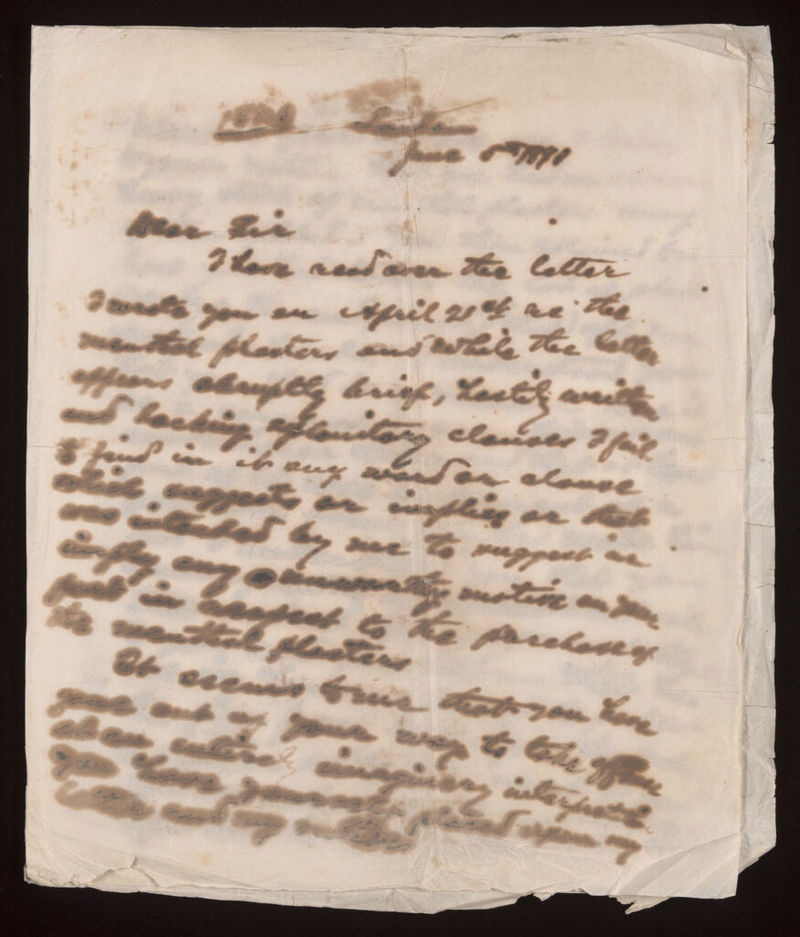 London
June 5th 1891
Dear Sir
I have read over the letter
I wrote you on April 21st re the
menthol plasters and while the letter
appears abruptly brief, hastily written
and lacking explanitory clauses I fail
to find in it any word or clause
which suggests or implies or that
was intended by me to suggest or
imply any unworthy motive on your
part in respect to the purchase of
the menthol plasters
It seems to me that you have
gone out of your way to take offense
at an entirely imaginary interpretation
you have yourself placed upon my
letter and my